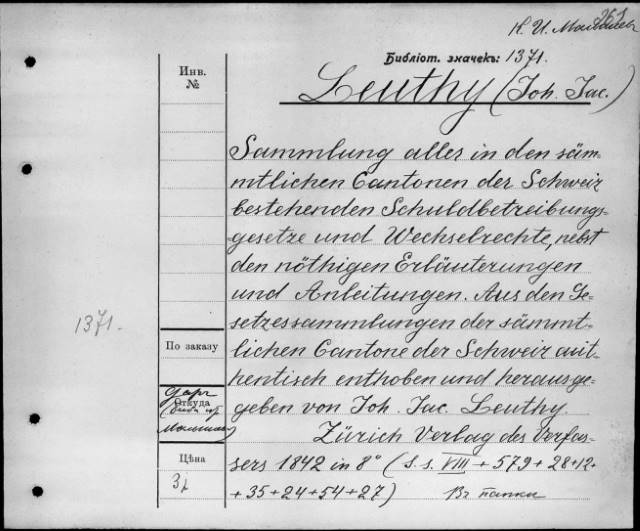 261
Н. И.
Библіот. значекъ: 1371.
Leuthy (Joh. Jac.)
Инв.
№
Sammlung alles in den säm-
mtlichen Cantonen der Schweiz
bestehenden Schuldbetreibungs-
gesetze und Wechselrechte, nebst
den nöthigen Erläuterungen
und Anleitungen. Aus den Ge-
setzessammlungen der sämmt-
lichen Cantone der Schweiz aut-
hentisch enthoben und herausge-
geben von Joh. Jac. Leuthy.
Zürich Verlag des Verfas-
sers 1842 in 8° (S. s. VIII + 579 + 28+12+
+ 35 + 24 + 54 + 27) Въ папкѣ
1371.
По заказу
Даръ
Откуда
Цѣна
3р